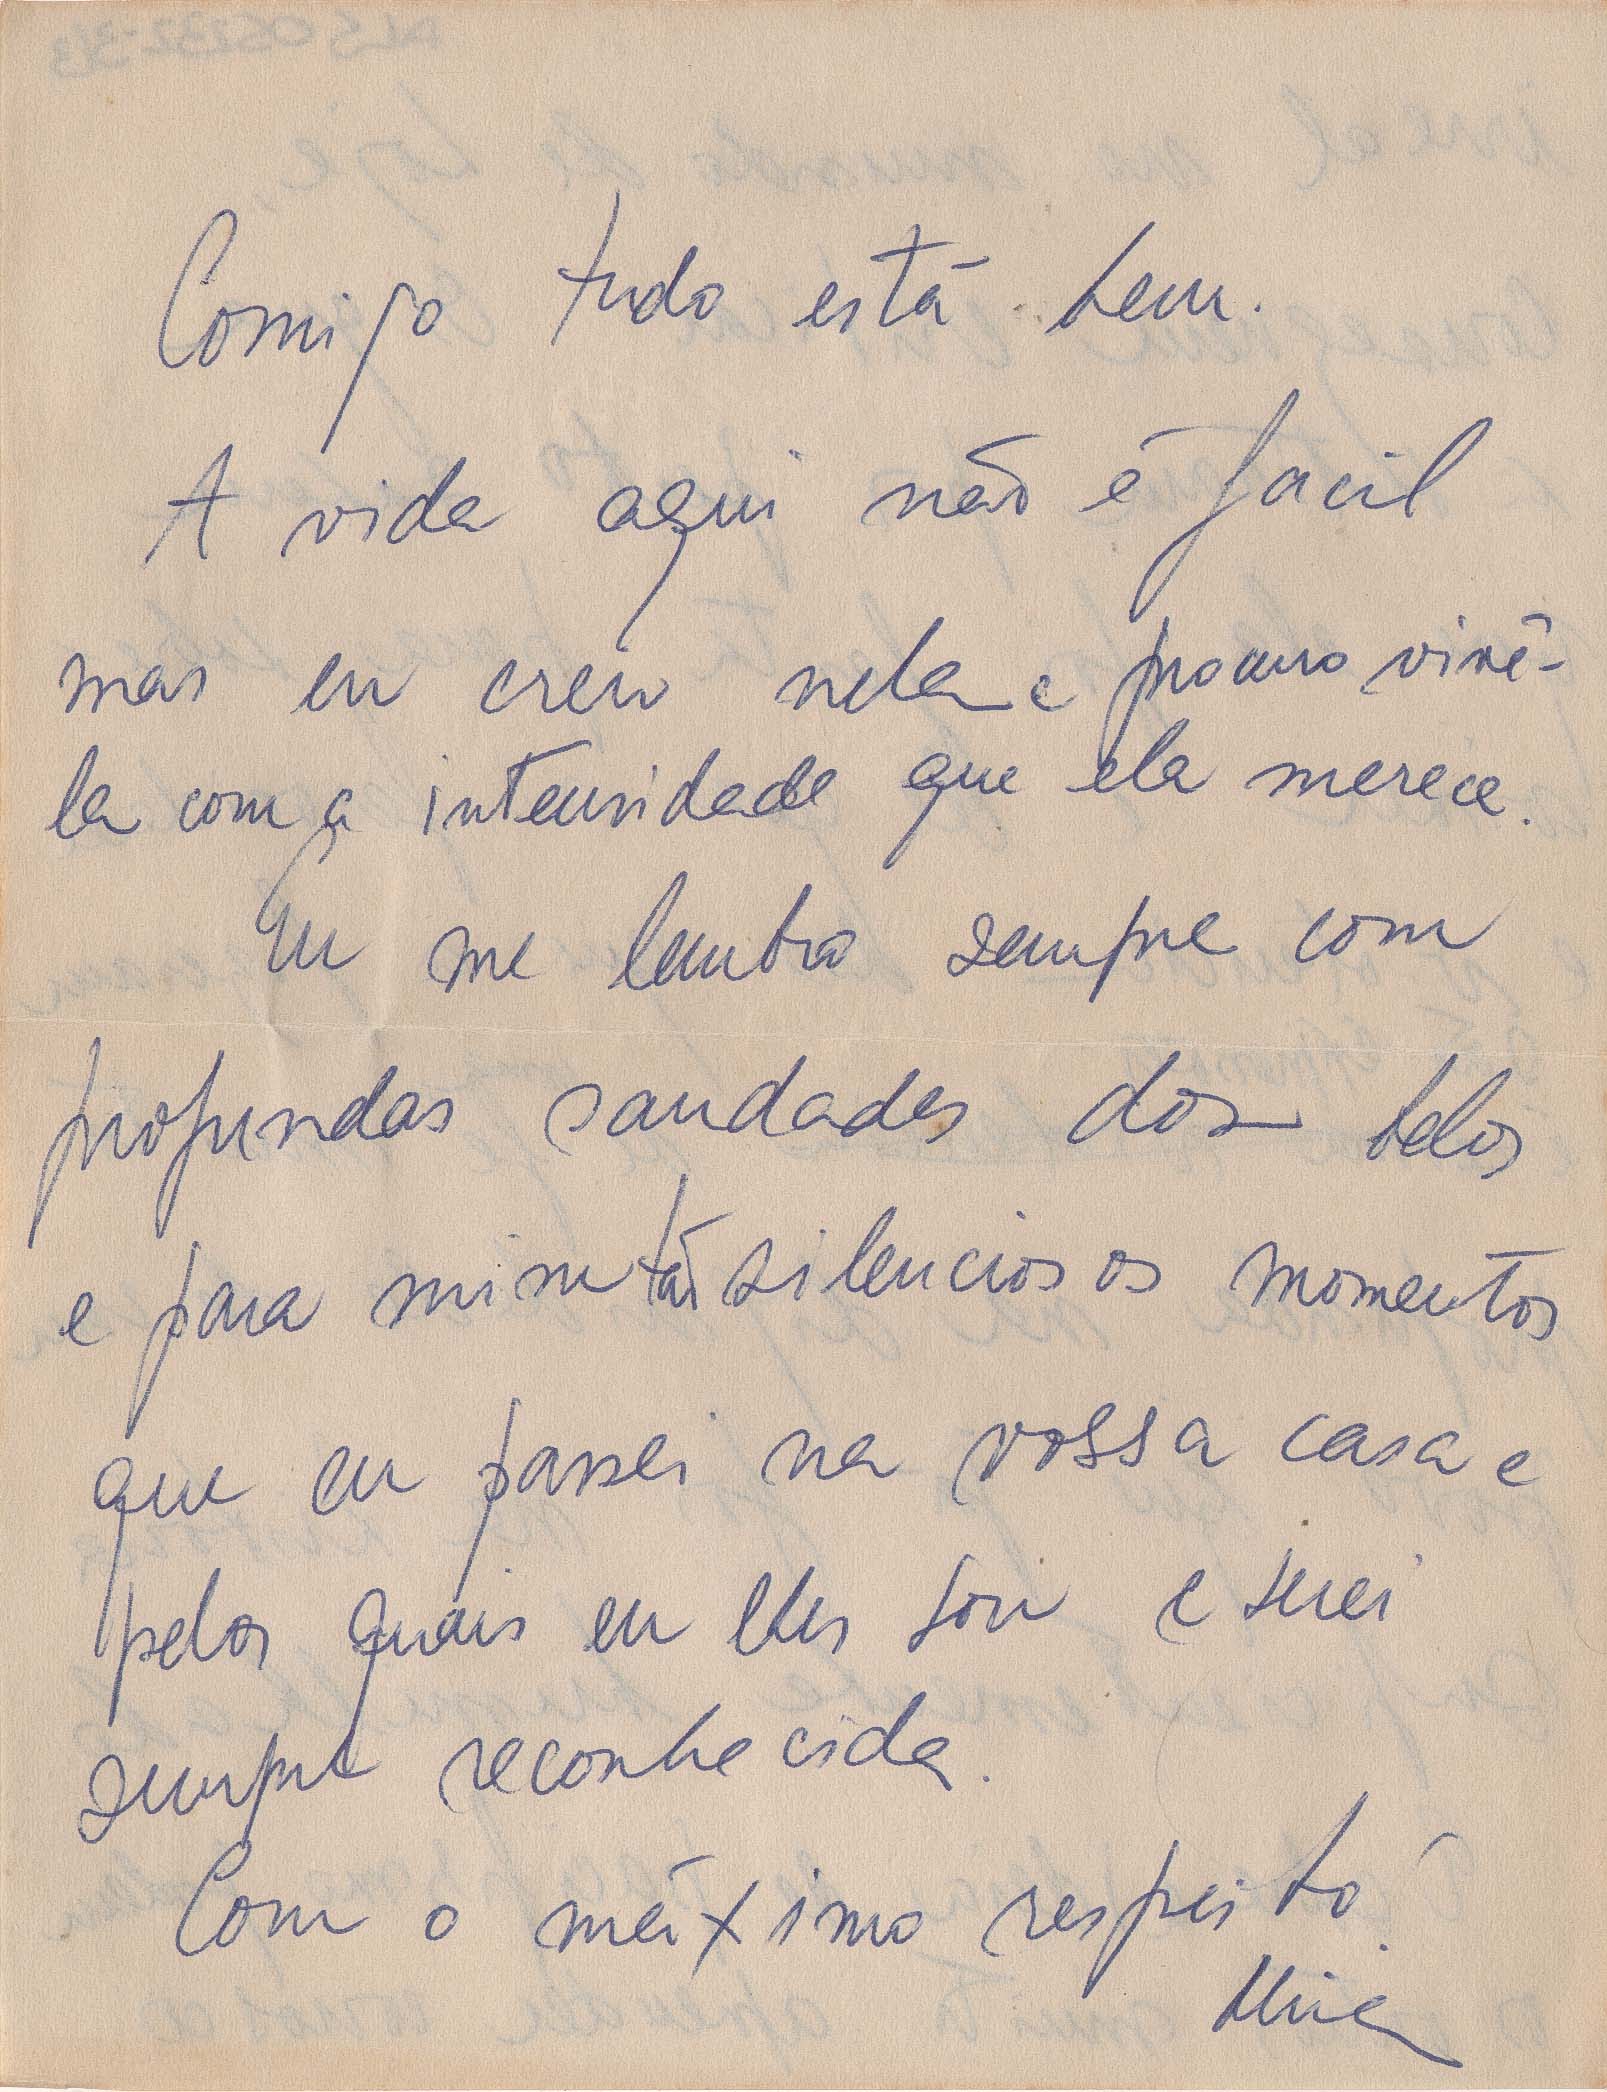 Comigo tudo está bem.
A vida aqui não é facil
mas eu creio nela e procuro vivê-
la com a intensidade que ela merece.
Eu me lembro sempre com
profundas saudades dos belos
e para mim tão silenciosos momentos
que eu passei na vossa casa e
pelos quais eu lhes sou e serei
sempre reconhecida.
Com o máximo respeito